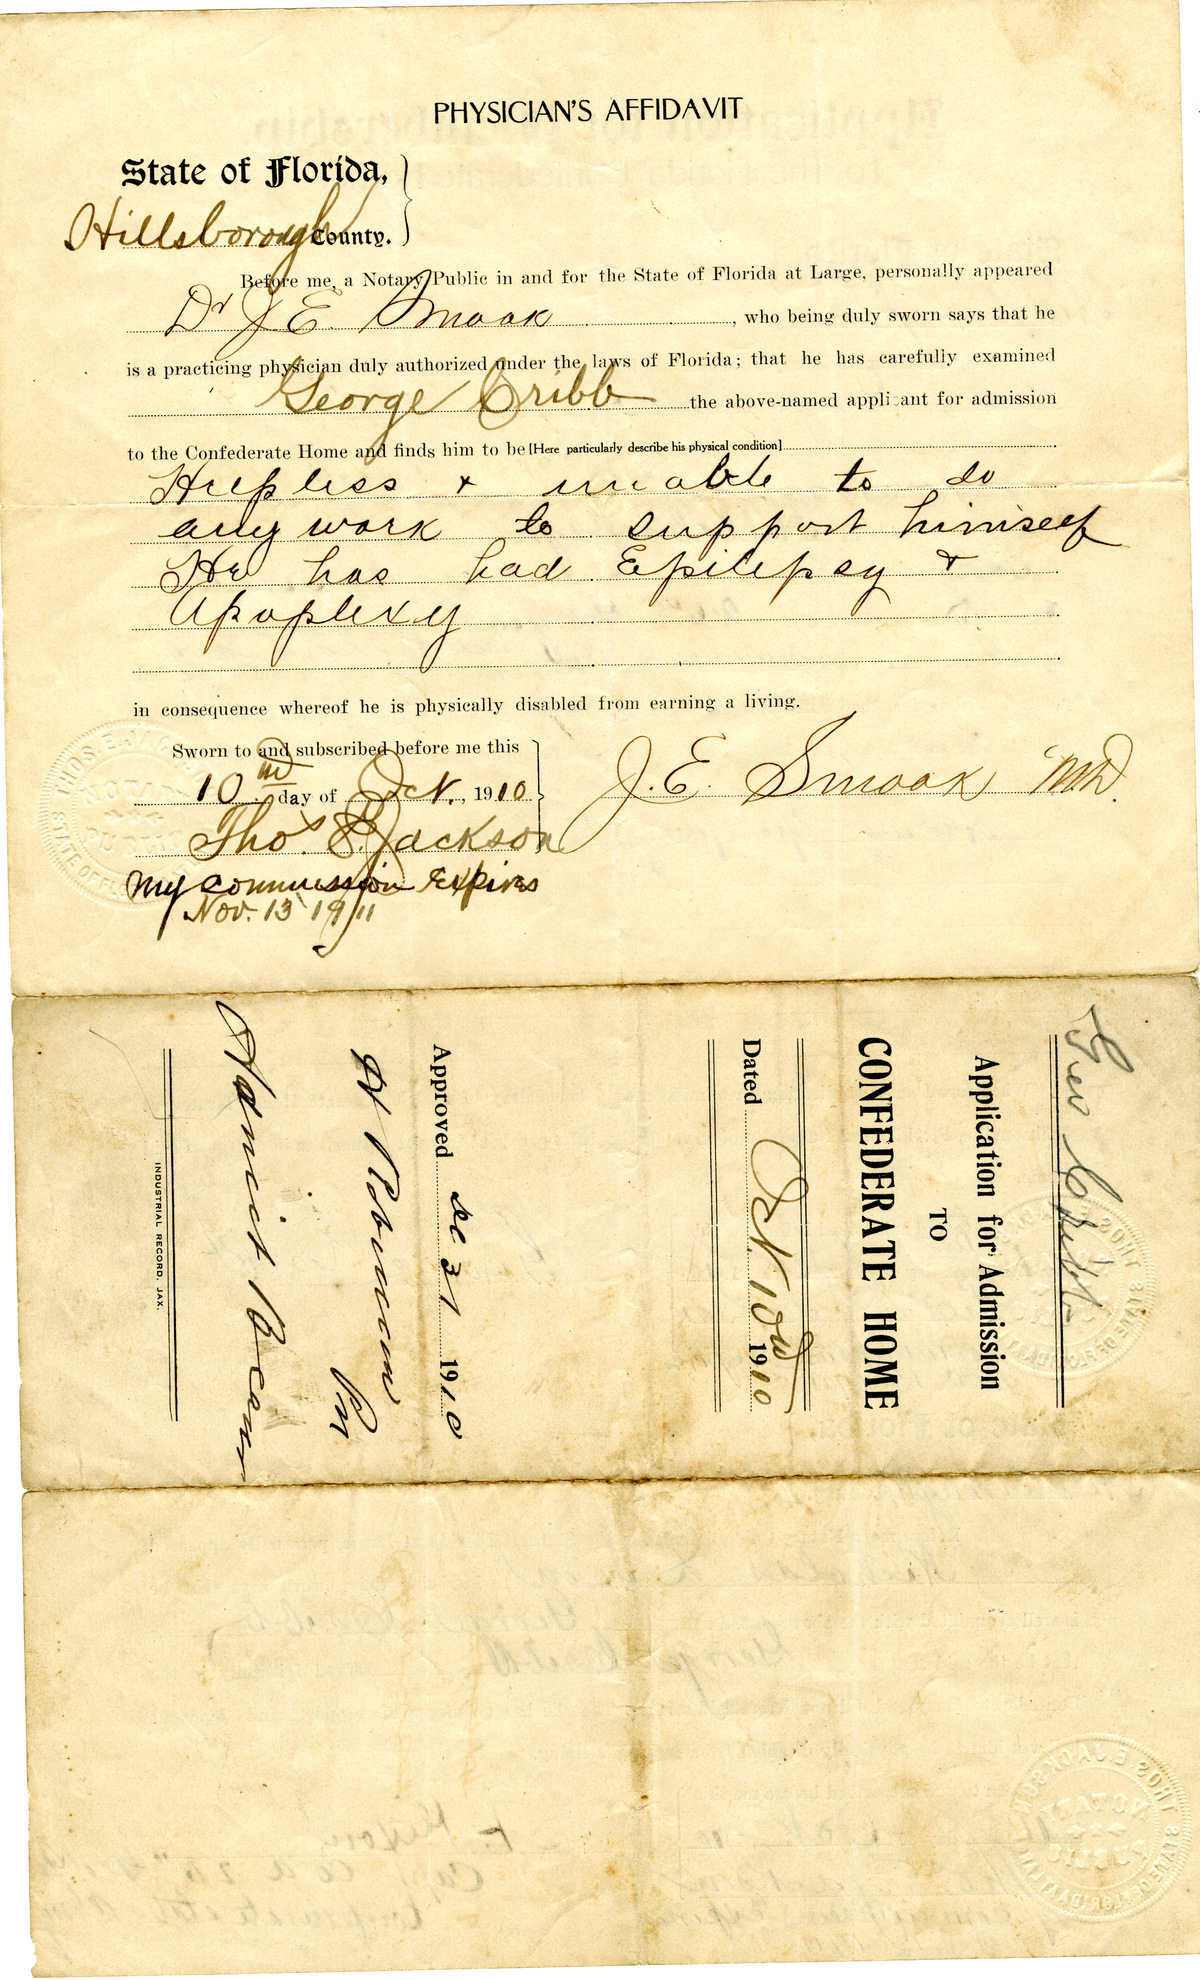 PHYSICIAN'S AFFIDAVIT
State of Florida,
Hillsborough County.
Before me, a Notary Public in and for the State of Florida at Large, personally appeared
Dr J. E. Smoak, who being duly sworn says that he
is a practicing physician duly authorized under the laws of Florida; that he has carefully examined
George Cribb the above-named applicant for admission
to the Confederate Home and finds him to be [Here particularly describe his physical condition]
Helpless & unable to do
any work to support himself
He has had Epilepsy &
Apoplexy
in consequence whereof he is physically disabled from earning a living.
Sworn to and subscribed before me this
10 day of Oct., 1910
J. E. Smoak MD.
Thos E. Jackson
My commission Expires
Nov. 13 1911
THOS. E. JACKSON
NOTARY
PUBLIC
Geo Cribb
Application for Admission
TO
CONFEDERATE HOME
Dated Oct. 10 1910
Approved Dec 31 1910
INDUSTRIAL RECORD, JAX.
THOS E. JACKSON
NOTARY
PUBLIC
STATE OF FLORIDA